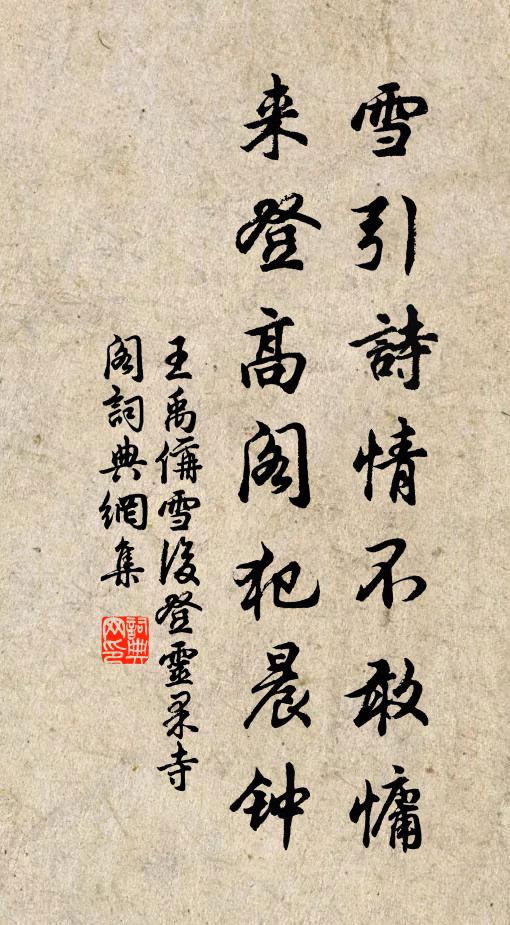 雪引詩情不敢慵
来登高阁犯晨钟
王禹偁雪後登靈果寺
阁詞典網集
詞典网印